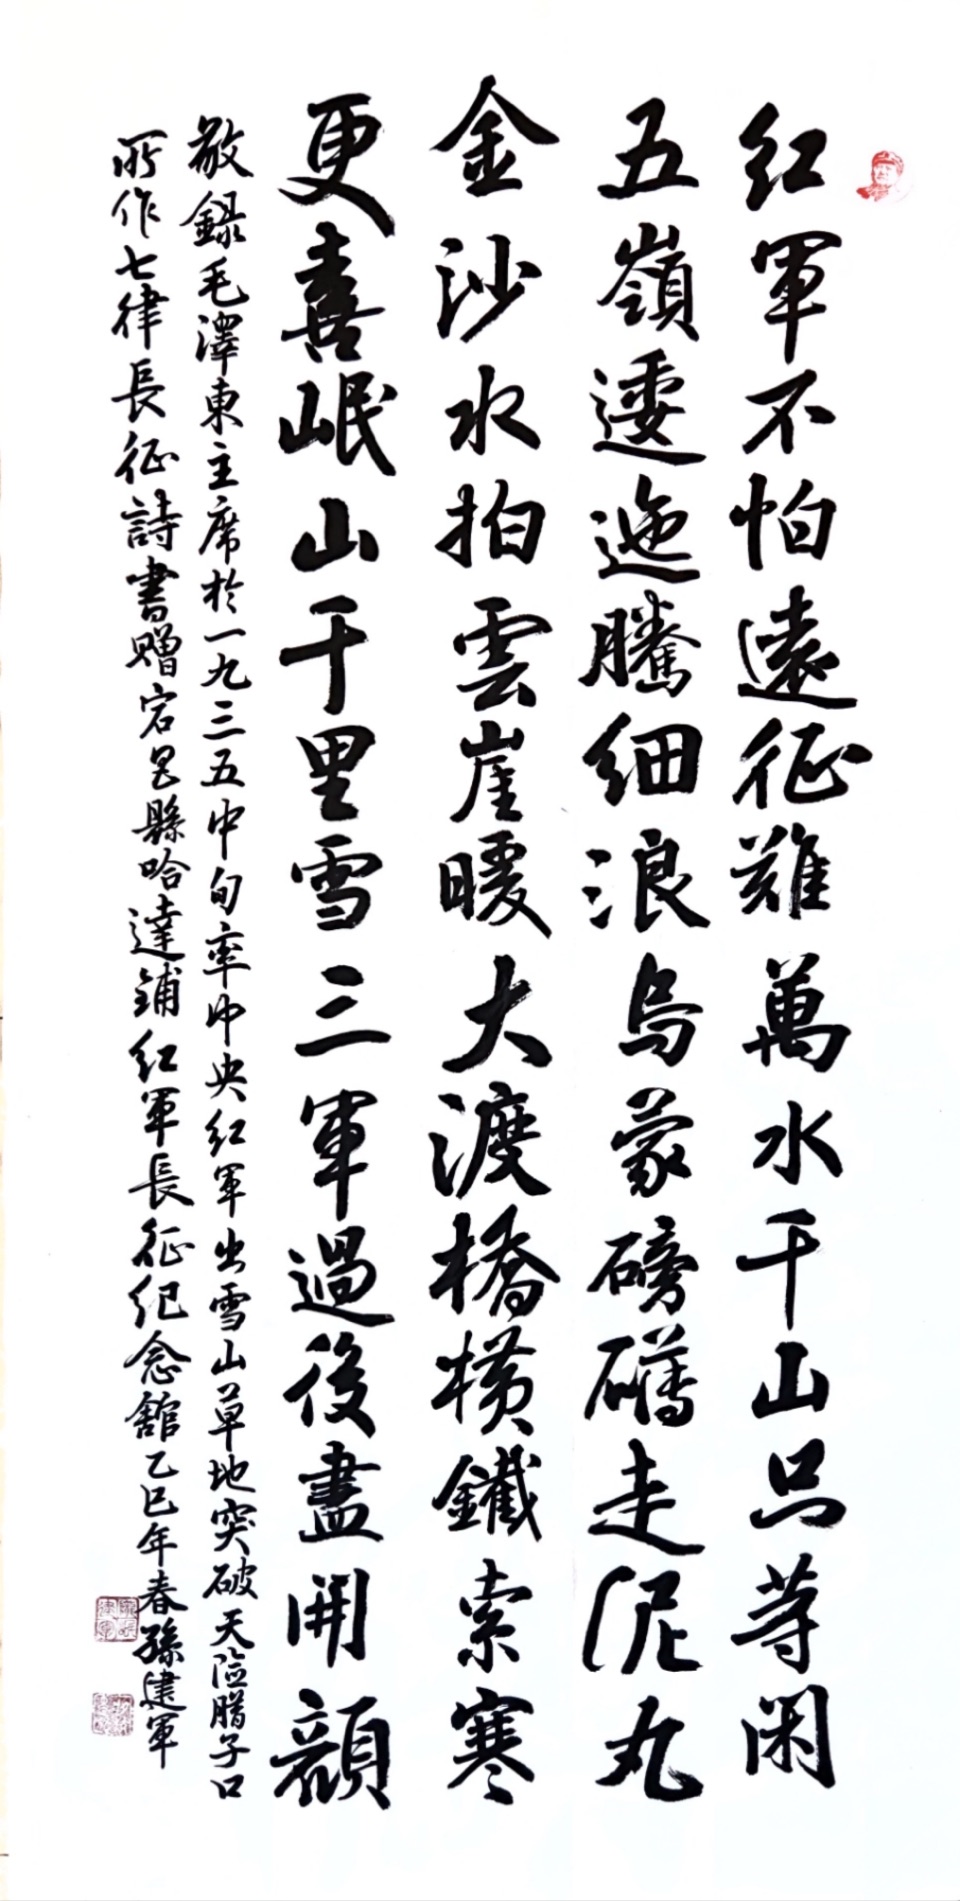 紅軍不怕遠征難萬水千山只等閑
五嶺逶迤騰細浪烏蒙磅礴走泥丸
金沙水拍雲崖暖大渡橋橫鐵索寒
更喜岷山千里雪三軍過後盡開顏
敬録毛澤東主席於一九三五中旬率中央红軍出雪山草地突破天险腊子口
所作七律長征詩書贈宕昌縣哈達鋪红軍長征纪念館乙巳年春孫建軍